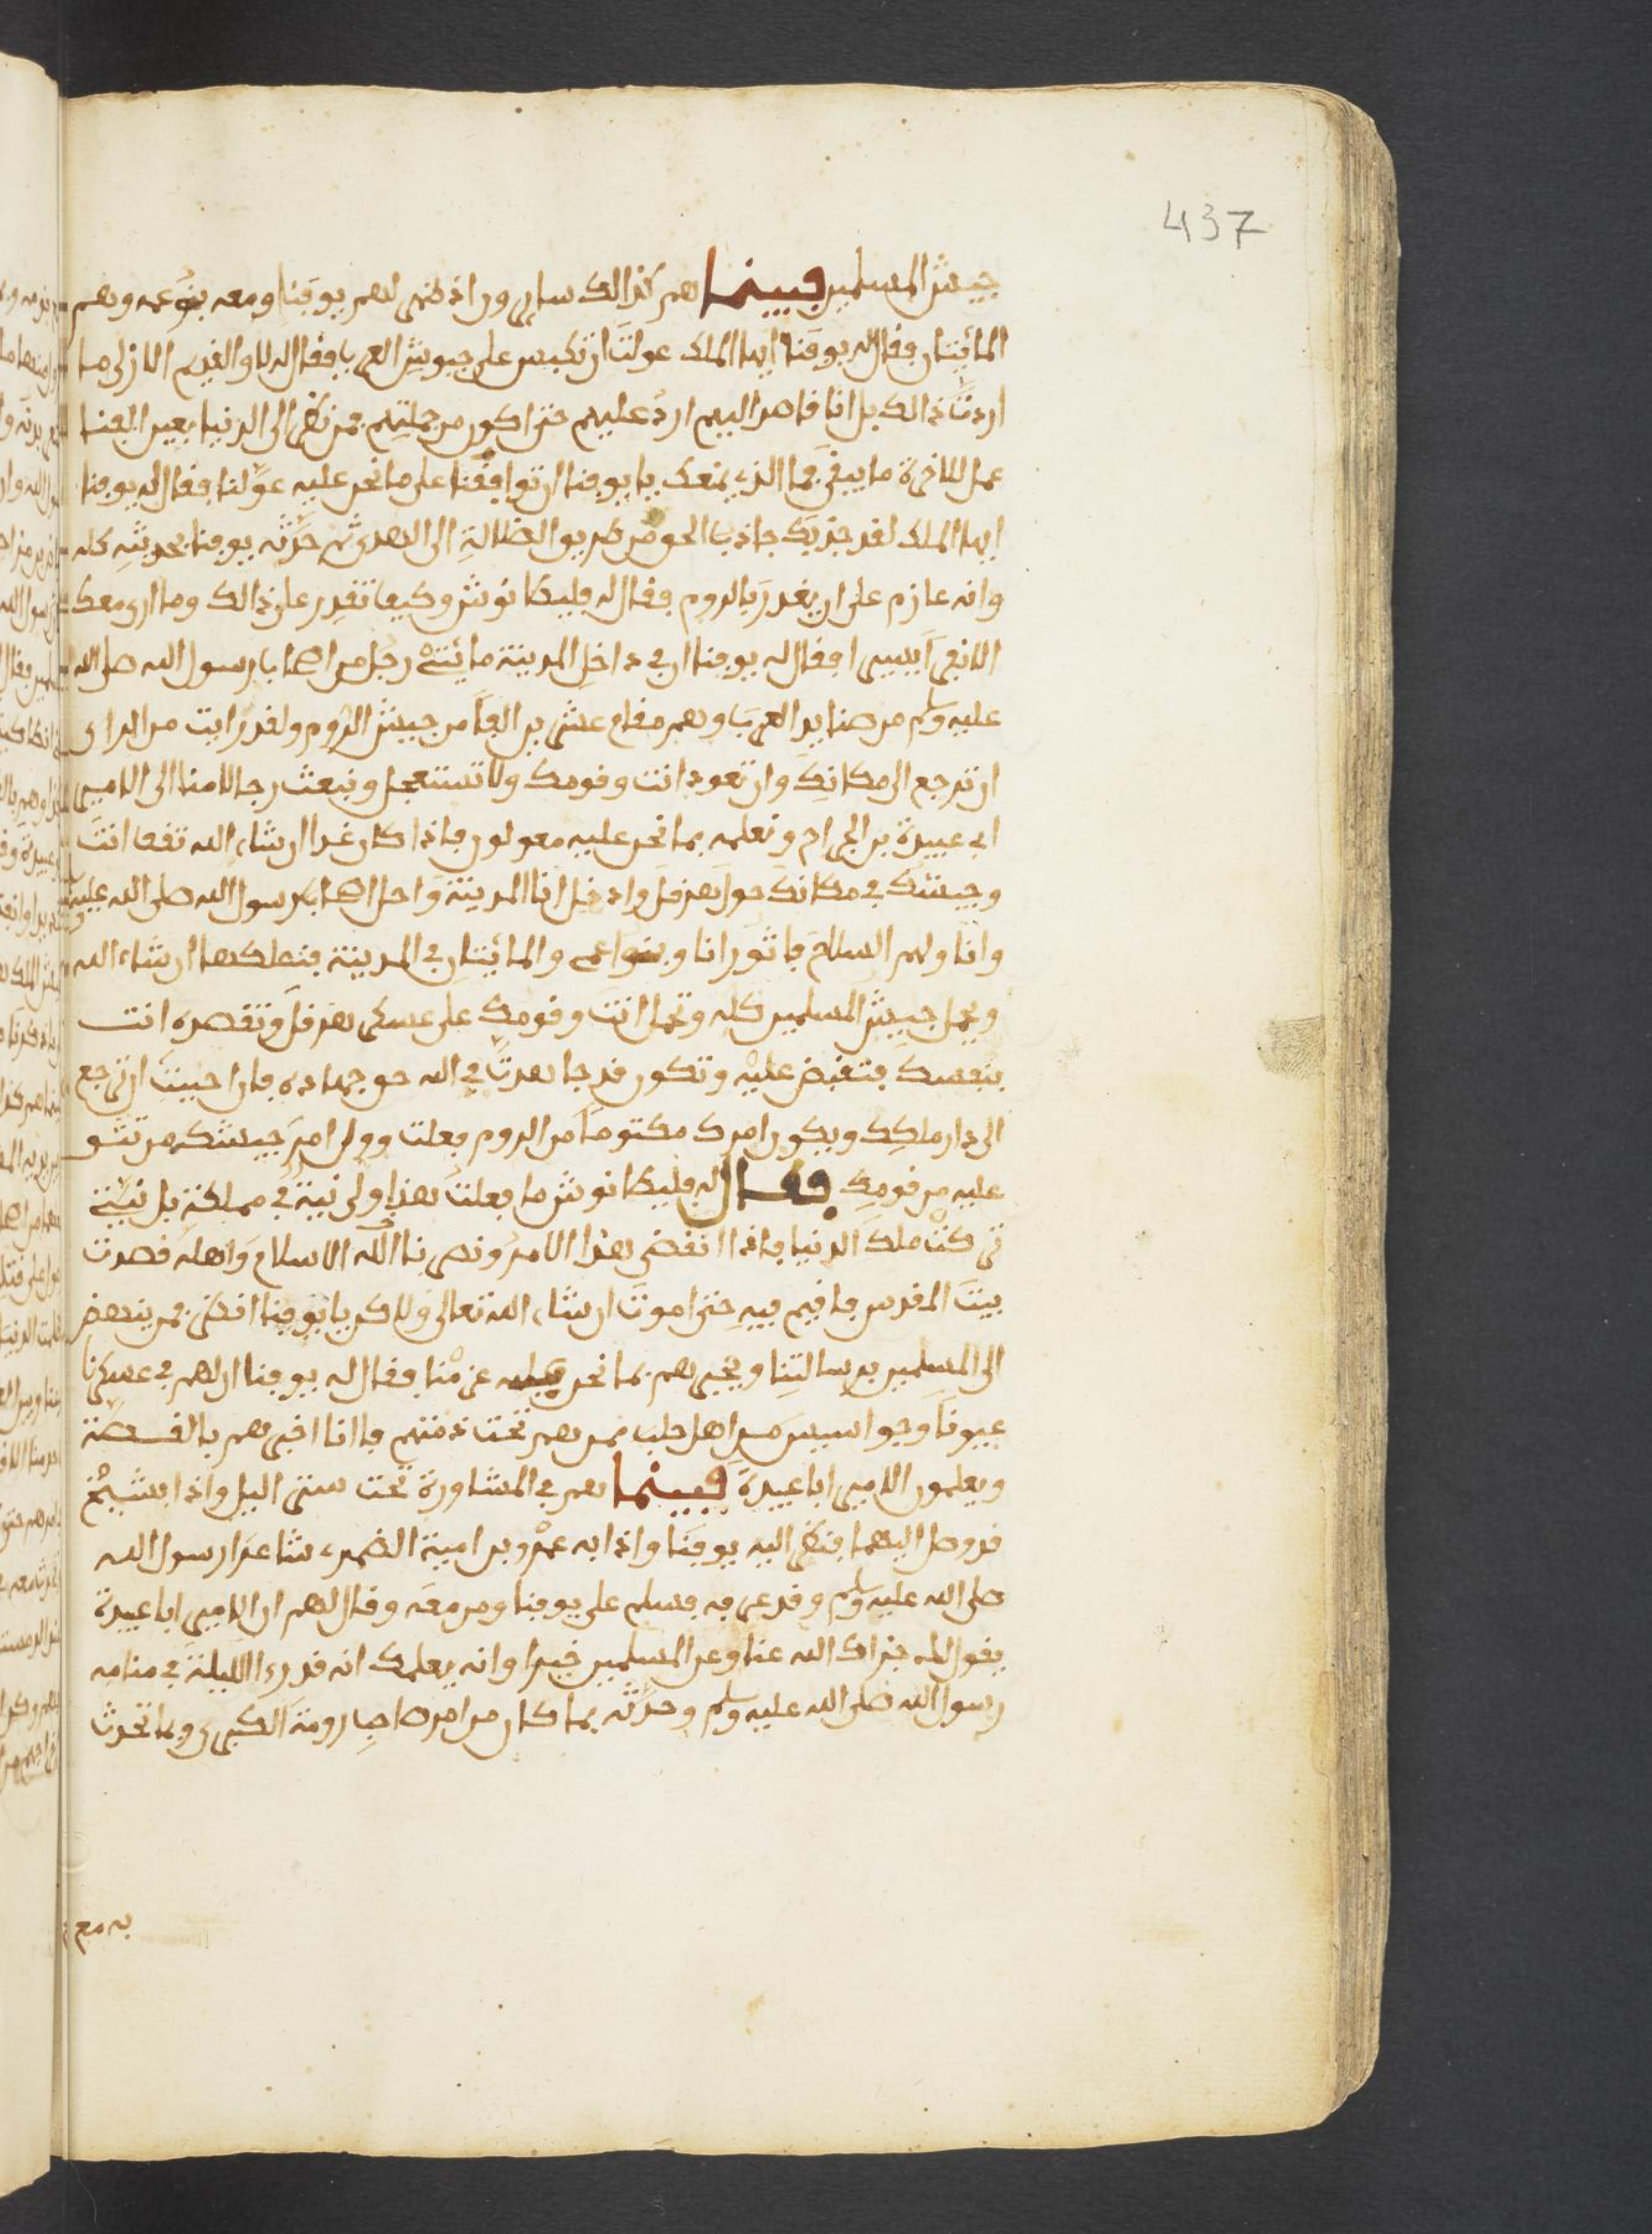 437
جيش المسلمين فبينما هم كذالك سايرون اذ ظهر لهم يوقنا ومعه بنو عمه وهم
المائيتان فقال له يوقنا ايها الملك عولت ان تكبس على جيوش العرب فقال له لا والقديم الازلي ما
اردت ذالك بل انا قاصد اليهم ارد عليهم حتى اكون من جملتهم فمن نظر الى الدنيا بعين الفنا
عمل للاخرة ما يبقى فما الذي يمنعك يا يوقنا ان توافقنا على ما نحن عليه عولنا فقال له يوقنا
ايها الملك لقد جذبك جاذب الحق من طريق الضلالة الى الهدى ثم حدثه يوقنا بحديثه كله
وانه عازم على ان يغدر بالروم فقال له فليطانوش وكيف تقدر على ذالك وما ارى معك
الا نفر يسير افقال له يوقنا ان في داخل المدينة مائتي رجل من اصحاب رسول الله صلى الله
عليه وسلم من صناديد العرب وهم مقام عشرين الفا من جيش الروم ولقد رايت من الراي
ان ترجع الى مكانك وان تعود انت وقومك ولا تستعجل ونبعث رجالا منا الى الامير
ابي عبيدة بن الجراح ونعلمه بما نحن عليه معولون فاذا كان غدا ان شاء الله تقف انت
وجيشك في مكانك حول هرقل وادخل انا المدينة واحل اصحاب رسول الله صلى الله عليه وسلم
وانا ولهم السلاح فاثور انا وبنو اعمي والمائيتان في المدينة فنملكها ان شاء الله
ويحمل جيش المسلمين كله وتحمل انت وقومك على عسكر هرقل وتقصده انت
بنفسك فتقبض عليه وتكون قد جاهدت في الله حق جهاده فان احببت ان ترجع
الى دار ملكك ويكون امرك مكتوما من الروم فعلت وول امر جيشك من تثق
عليه من قومك فقال له فليطانوش ما فعلت هذا ولي نية في مملكة بل نيتي
تركت ملك الدنيا فاذا انقضى هذا الامر ونصر بنا الله الاسلام واهله قصدت
بيت المقدس فاقيم فيه حتى اموت ان شاء الله تعالى ولاكن يا يوقنا انظر فمن ينهض
الى المسلمين برسالتنا ويخبرهم بما نحن عليه عزمنا فقال له يوقنا ان لهم في عسكرنا
عيونا وجواسيس من اهل حلب ممن هم تحت ذمتهم فاانا اخبرهم بالقصة
ويعلمون الامير ابا عبيدة فبينما هم في المشاورة تحت ستر اليل واذا بشيخ
قد وصل اليهما فنظر اليه يوقنا واذا به عمرو بن امية الضمري شاعر رسول الله
صلى الله عليه وسلم وقد عرفه فسلم على يوقنا ومن معه وقال لهم ان الامير ابا عبيدة
يقول لك جزاك الله عنا وعن المسلمين خيرا وانه يعلمك انه قد رءا الليلة في منامه
رسول الله صلى الله عليه وسلم وحدثه بما كان من امر صاحب رومة الكبرى وبما تحدث
به مع